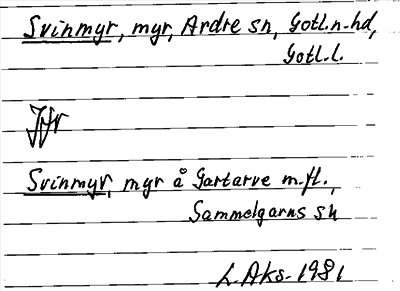 Svinmyr, myr, Ardre sn, Gotl.n-hd,
Gotl.l.
Jfr
Svinmyr, myr å Gartarve m.fl.,
Sammelgarns sn
L.Aks. 1981